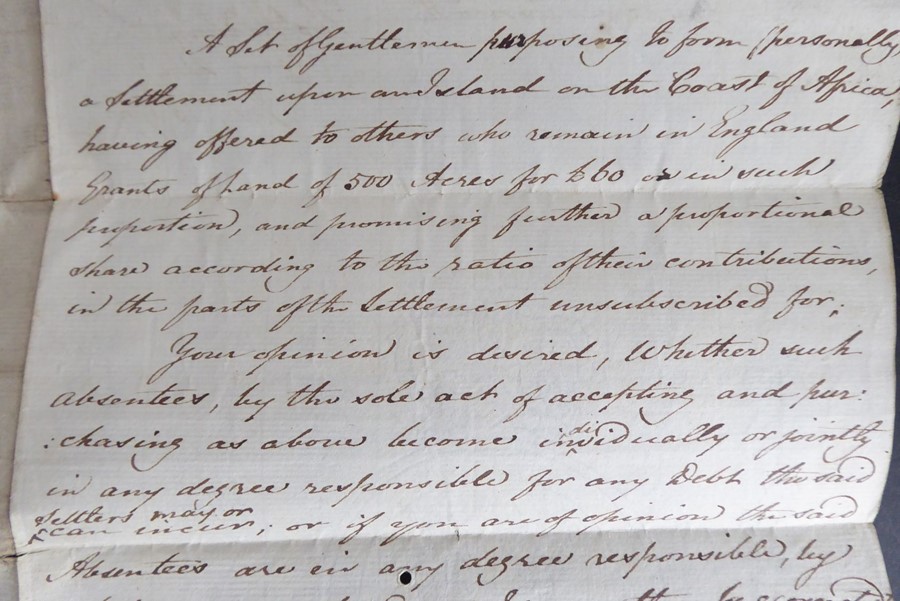 A Set of Gentlemen purposing to form (personally)
a Settlement upon an Island on the Coast of Africa,
having offered to others who remain in England
Grants of Land of 500 Acres for £60 or in such
proportion, and promising further a proportional
share according to the ratio of their contributions,
in the parts of the Settlement unsubscribed for;
Your opinion is desired, Whether such
Absentees, by the sole act of accepting and pur:
:chasing as above become individually or jointly
in any degree responsible for any Debt the said
Settlers may or
can incur; or if you are of opinion the said
Absentees are in any degree responsible, by